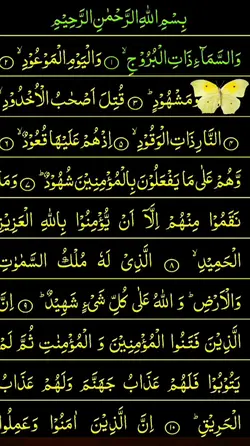 بِسْمِ اللهِ الرَّحْمٰنِ الرَّحِيْمِ
وَالسَّمَآءِ ذَاتِ الْبُرُوْجِ ۙ ﴿۱﴾ وَالْيَوْمِ الْمَوْعُوْدِ ۙ ﴿۲﴾
مَشْهُوْدٍ ؕ ﴿۳﴾ قُتِلَ اَصْحٰبُ الْاُخْدُوْدِ ۙ
﴿۴﴾ النَّارِ ذَاتِ الْوَقُوْدِ ۙ ﴿۵﴾ اِذْ هُمْ عَلَيْهَا قُعُوْدٌ ۙ ﴿۶﴾
وَّهُمْ عَلٰى مَا يَفْعَلُوْنَ بِالْمُؤْمِنِيْنَ شُهُوْدٌ ؕ ﴿۷﴾ وَمَا
نَقَمُوْا مِنْهُمْ اِلَّاۤ اَنْ يُّؤْمِنُوْا بِاللهِ الْعَزِيْزِ
الْحَمِيْدِ ۙ ﴿۸﴾ الَّذِيْ لَهٗ مُلْكُ السَّمٰوٰتِ
وَالْاَرْضِ ؕ وَ اللهُ عَلٰى كُلِّ شَيْءٍ شَهِيْدٌ ؕ ﴿۹﴾ اِنَّ
الَّذِيْنَ فَتَنُوا الْمُؤْمِنِيْنَ وَ الْمُؤْمِنٰتِ ثُمَّ لَمْ
يَتُوْبُوْا فَلَهُمْ عَذَابُ جَهَنَّمَ وَلَهُمْ عَذَابُ
الْحَرِيْقِ ؕ ﴿۱۰﴾ اِنَّ الَّذِيْنَ اٰمَنُوْا وَعَمِلُوا